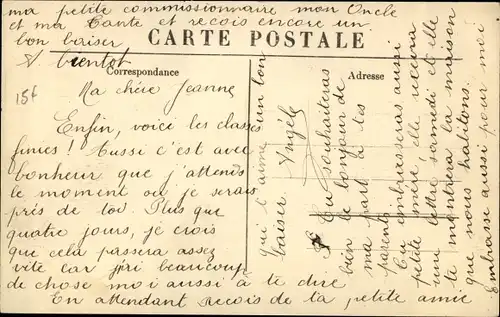 CARTE POSTALE
Correspondance
Adresse
15f
Ma chère Jeanne
Enfin, voici les classes
finies! Aussi c'est avec
bonheur que j'attends
le moment où je serais
près de toi. Plus que
quatre jours, je crois
que cela passera assez
vite car j'ai beaucoup
de chose moi aussi à te dire
En attendant recois de ta petite amie
qui t'aime un bon
baiser Angèle
Tu souhaiteras
bien le bonjour de
ma part à tes
parents
Tu embrasseras aussi
petite mère, elle recevra
une lettre samedi et elle
te montrera la maison
que nous habitons.
Embrasse aussi pour moi
ma petite commissionnaire mon Oncle
et ma Tante et recois encore un
bon baiser
A bientôt